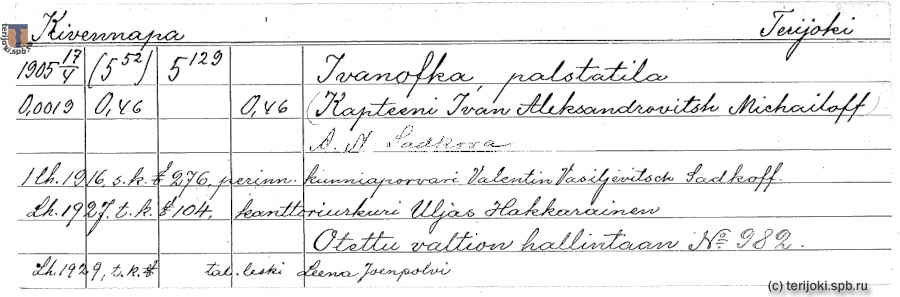 Kivennapa Terijoki
1905 17/4 (5 52) 5 129 Ivanofka, palstatila
0,0019 0,46 0,46 (Kapteeni Ivan Aleksandrovitsh Michailoff)
A. N Sadkova
1 lh. 1916, s.k. § 276, perinn. kunniaporvari Valentin Vasiljevitsch Sadkoff.
Lh. 1927, t.k. § 104, kanttoriurkuri Uljas Hakkarainen
Otettu valtion hallintaan No 982.
Lh. 1929, t.k. § tal. leski Leena Joenpolvi
terijoki.spb.ru
(c) terijoki.spb.ru